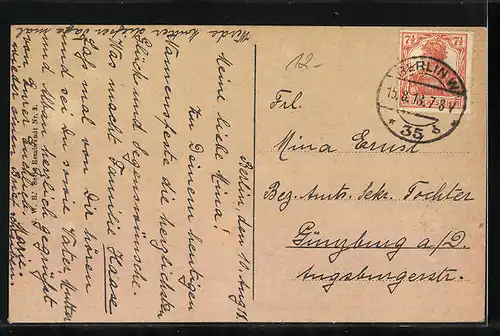 Berlin, den 11. Aug. 18.
Meine liebe Mina!
Zu Deinem heutigen
Namensfeste die herzlichsten
Glück und Segenswünsche.
Was macht Familie Haase
Laß mal von Dir hören
und sei Du sowie Vater, Mutter
und Alban herzlich gegrüßt
von Eurer
Werde hinter dieser Tage mal
wieder einen Brief
12-
Frl.
Mina Ernst
Bez. Amts. Sekr. Tochter
Günzburg a/D.
Augsburgerstr.
7½ 7½
BERLIN W
* 35 b *